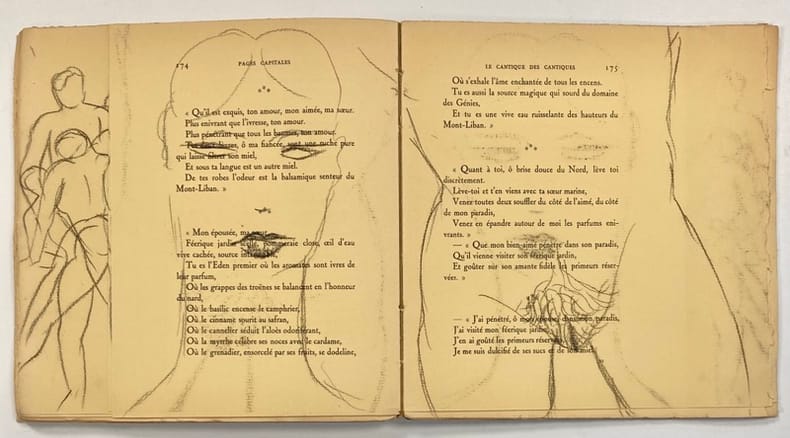 174 PAGES CAPITALES
« Qu'il est exquis, ton amour, mon aimée, ma sœur.
Plus enivrant que l'ivresse, ton amour.
Plus pénétrant que tous les baumes, ton amour.
Tes deux lèvres, ô ma fiancée, sont une ruche pure
qui laisse filtrer son miel,
Et sous ta langue est un autre miel.
De tes robes l'odeur est la balsamique senteur du
Mont-Liban. »
« Mon épousée, ma sœur,
Féerique jardin scellé, pommeraie close, œil d'eau
vive cachée, source
Tu es l'Eden premier où les aromates sont ivres de
leur parfum,
Où les grappes des troènes se balancent en l'honneur
du nard,
Où le basilic encense le camphrier,
Où le cinname sourit au safran,
Où le cannelier séduit l'aloès odoriférant,
Où la myrrhe célèbre ses noces avec le cardame,
Où le grenadier, ensorcelé par ses fruits, se dodeline,
LE CANTIQUE DES CANTIQUES 175
Où s'exhale l'âme enchantée de tous les encens.
Tu es aussi la source magique qui sourd du domaine
des Génies,
Et tu es une vive eau ruisselante des hauteurs du
Mont-Liban. »
« Quant à toi, ô brise douce du Nord, lève toi
discrètement.
Lève-toi et t'en viens avec ta sœur marine,
Venez toutes deux souffler du côté de l'aimé, du côté
de mon paradis,
Venez en épandre autour de moi les parfums eni-
vrants. »
— « Que mon bien-aimé pénètre dans son paradis,
Qu'il vienne visiter son féerique jardin,
Et goûter sur son amante fidèle les primeurs réser-
vées. »
— « J'ai pénétré, ô mon épouse, dans mon paradis,
J'ai visité mon féerique jardin,
J'en ai goûté les primeurs réservées,
Je me suis dulcifié de ses sucs et de son miel.